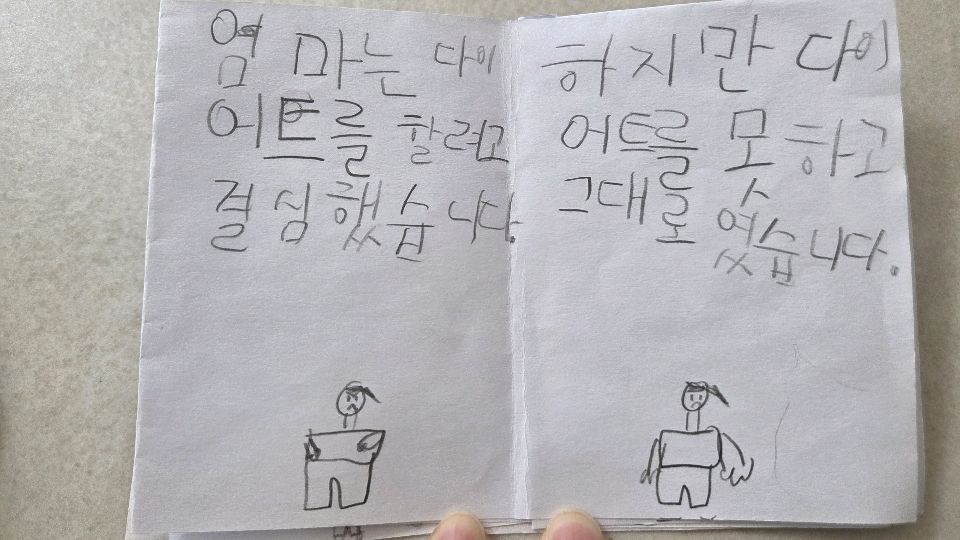 엄마는 다이
어트를 할려고
결심했습니다.
하지만 다이
어트를 못하고
그대로 였습니다.